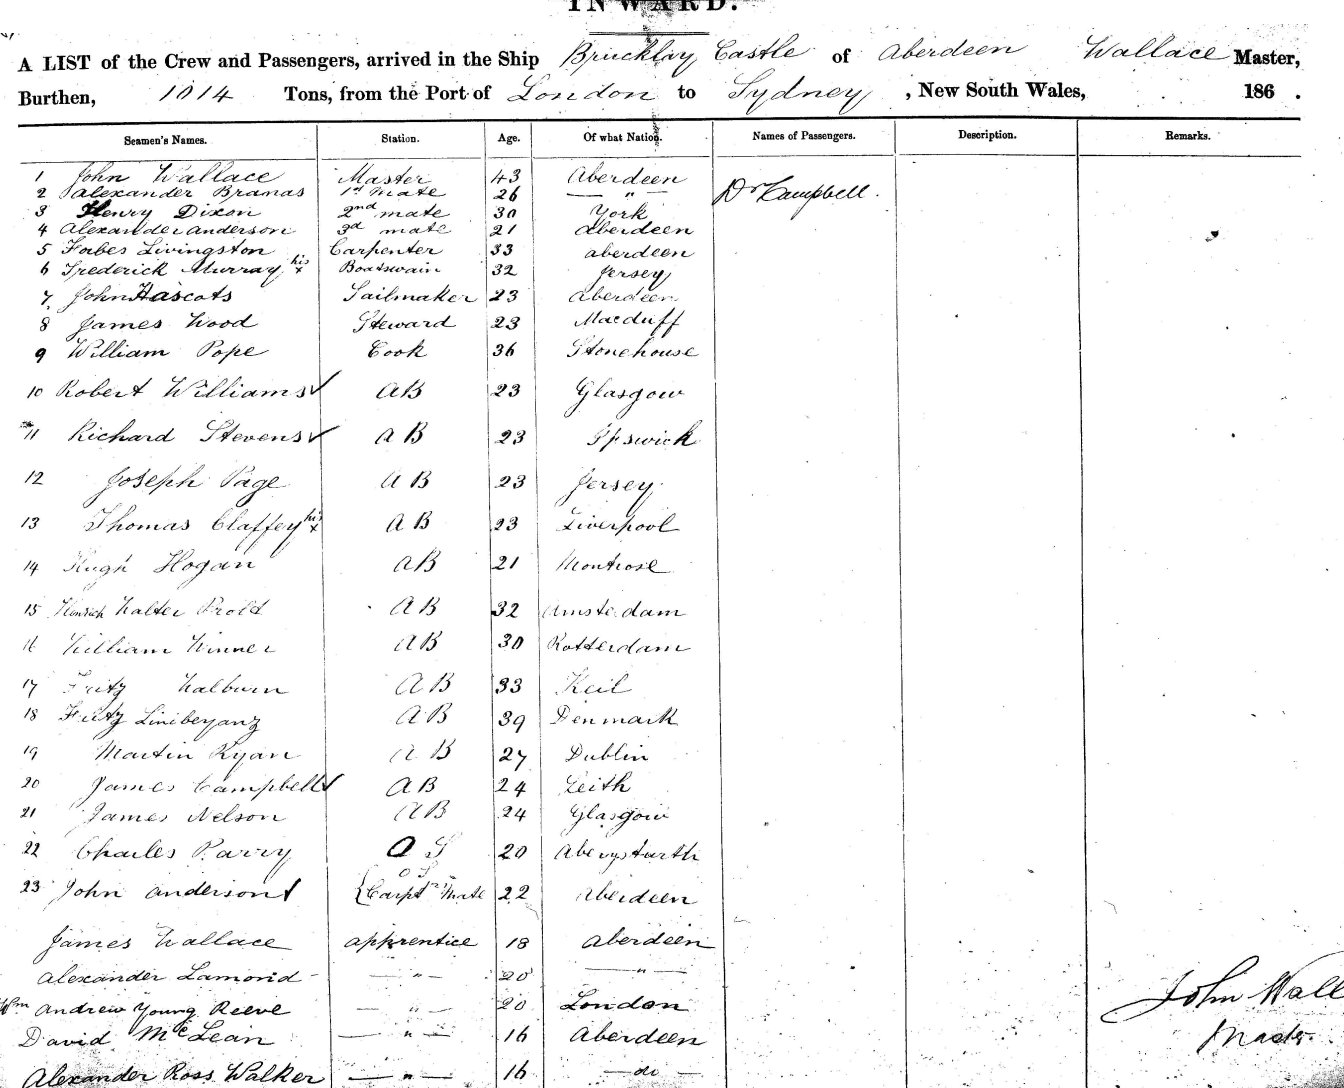 INWARD.
A LIST of the Crew and Passengers, arrived in the Ship Brucklay Castle of Aberdeen Wallace Master,
Burthen, 1014 Tons, from the Port of London to Sydney, New South Wales, 186 .
Seamen's Names. Station. Age. Of what Nation. Names of Passengers. Description. Remarks.
1 John Wallace Master 43 Aberdeen
2 Alexander Bramas 1st mate 26 — " Dr Campbell.
3 Henry Dixon 2nd mate 30 York
4 Alexander Anderson 3d mate 21 Aberdeen
5 Forbes Livingston Carpenter 33 Aberdeen
6 Frederick Murray his x Boatswain 32 Jersey
7 John Sailmaker 23 Aberdeen
8 James Wood Steward 23 Macduff
9 William Pope Cook 36 Stonehouse
10 Robert Williams ✓ AB 23 Glasgow
11 Richard Stevens ✓ AB 23 Ipswich
12 Joseph Page AB 23 Jersey
13 Thomas Claffey his x AB 23 Liverpool
14 Hugh Hogan AB 21 Montrose
15 Walter AB 32 Amsterdam
16 William Winner AB 30 Rotterdam
17 Fritz Walburn AB 33 Keil
18 Fritz AB 39 Denmark
19 Martin Ryan AB 27 Dublin
20 James Campbell ✓ AB 24 Leith
21 James Nelson AB 24 Glasgow
22 Charles Parry OS 20 Aberystwith
23 John Anderson OS Carptrs Mate 22 Aberdeen
James Wallace apprentice 18 Aberdeen
Alexander Lamond — " — 20 — " —
Wm Andrew Young Reeve — " — 20 London
David McLean — " — 16 Aberdeen
Alexander Ross Walker — " — 16 — do —
John Wall
Master